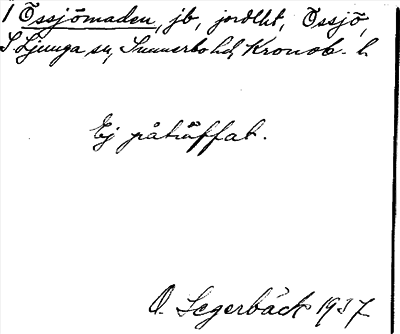 1 Össjömaden, jb, jordlht, Össjö,
S Ljunga sn, Sunnerbo hd, Kronob. l.
Ej påträffat.
O. Segerbäck 1937